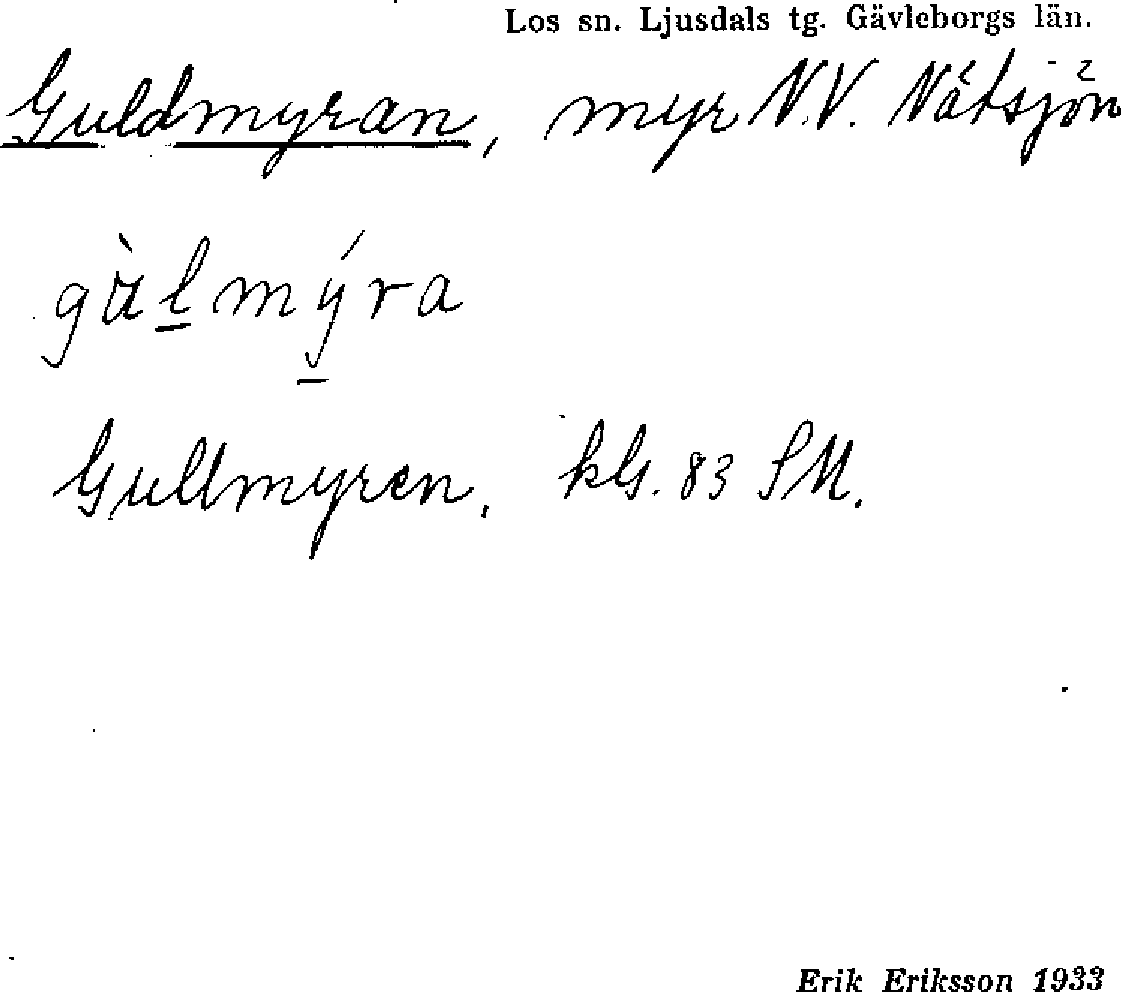 Los sn. Ljusdals tg. Gävleborgs län.
Guldmyran, myr N.V. Nätsjön
gùl̲mýra
Gullmyren, kls. 83 SM.
Erik Eriksson 1933